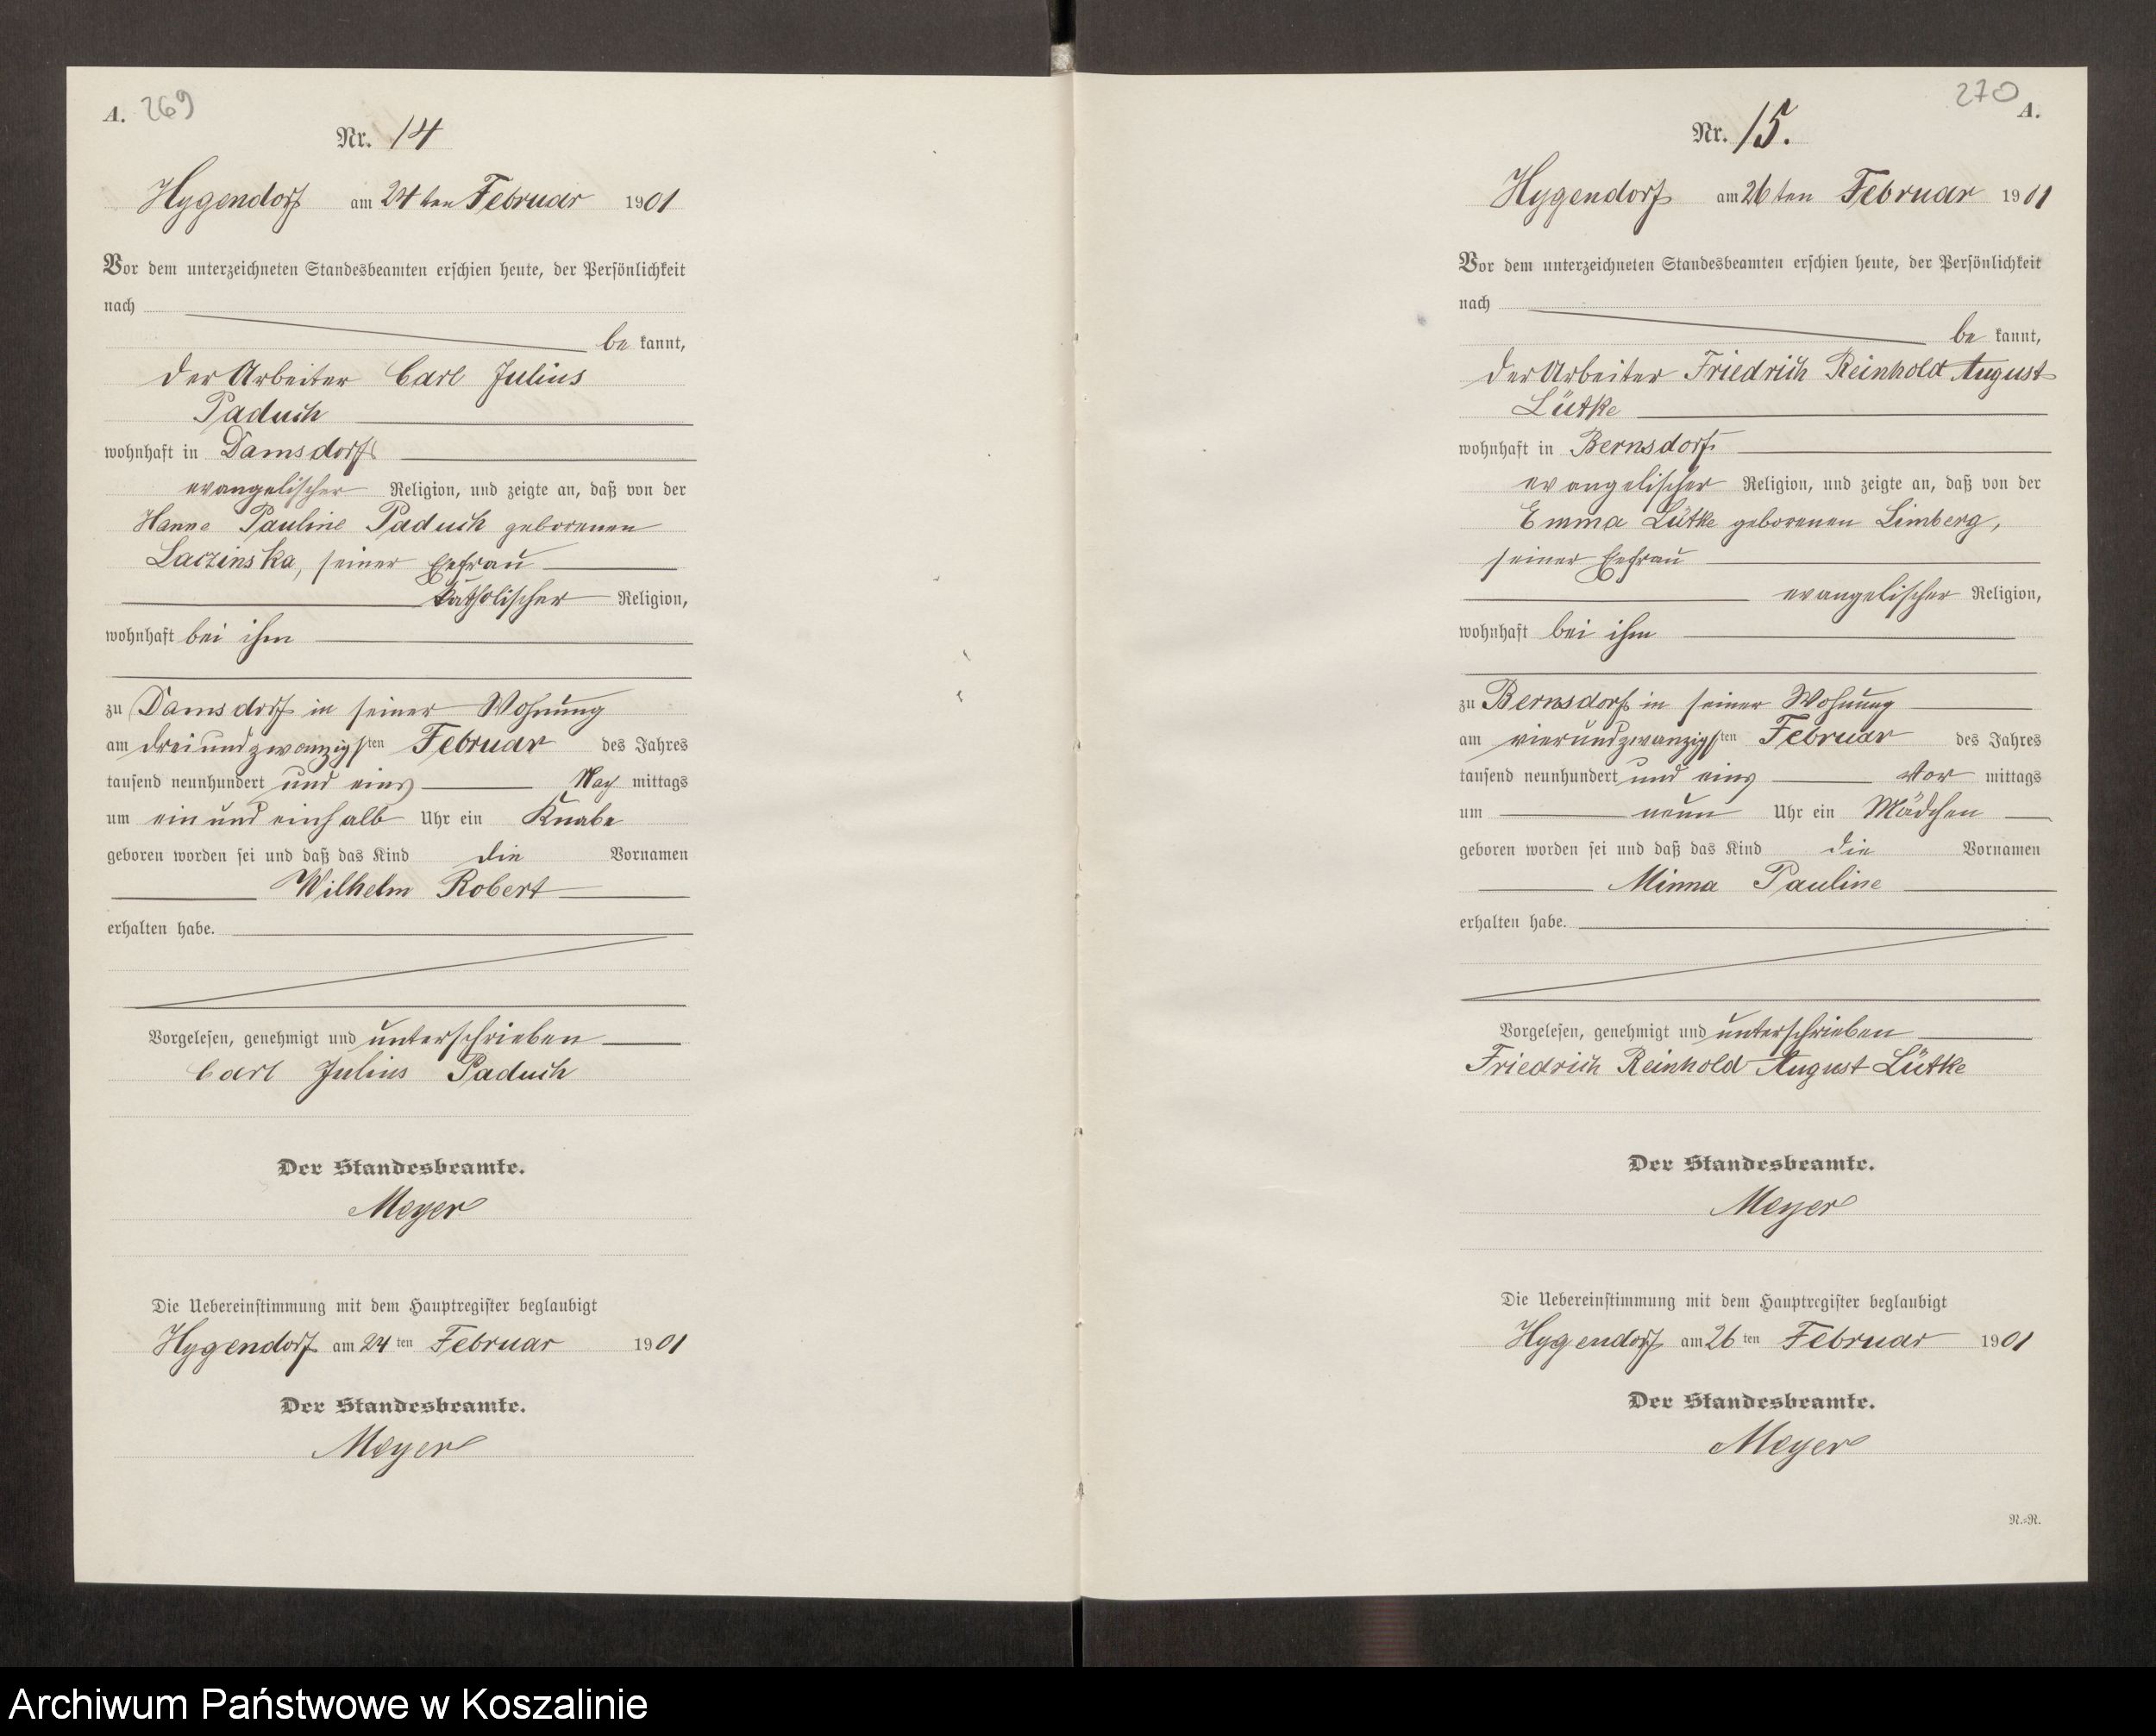 A. 269
Nr. 14
Hygendorf am 24ten Februar 1901
Vor dem unterzeichneten Standesbeamten erschien heute, der Persönlichkeit
nach
be kannt,
der Arbeiter Carl Julius
Paduch
wohnhaft in Damsdorf
evangelischer Religion, und zeigte an, daß von der
Hanne Pauline Paduch geborenen
Laczinska, seiner Ehefrau
katholischer Religion,
wohnhaft bei ihm
zu Damsdorf in seiner Wohnung
am dreiundzwanzigsten Februar des Jahres
tausend neunhundert und eins Nach mittags
um ein und einhalb Uhr ein Knabe
geboren worden sei und daß das Kind die Vornamen
Wilhelm Robert
erhalten habe.
Vorgelesen, genehmigt und unterschrieben
Carl Julius Paduch
Der Standesbeamte.
Meyer
Die Uebereinstimmung mit dem Hauptregister beglaubigt
Hygendorf am 24 ten Februar 1901
Der Standesbeamte.
Meyer
270 A.
Nr. 15.
Hygendorf am 26ten Februar 1901
Vor dem unterzeichneten Standesbeamten erschien heute, der Persönlichkeit
nach
be kannt,
der Arbeiter Friedrich Reinhold August
Lütke
wohnhaft in Bernsdorf
evangelischer Religion, und zeigte an, daß von der
Emma Lütke geborenen Limberg,
seiner Ehefrau
evangelischer Religion,
wohnhaft bei ihm
zu Bernsdorf in seiner Wohnung
am vierundzwanzigsten Februar des Jahres
tausend neunhundert und eins Vor mittags
um neun Uhr ein Mädchen
geboren worden sei und daß das Kind die Vornamen
Minna Pauline
erhalten habe.
Vorgelesen, genehmigt und unterschrieben
Friedrich Reinhold August Lütke
Der Standesbeamte.
Meyer
Die Uebereinstimmung mit dem Hauptregister beglaubigt
Hygendorf am 26 ten Februar 1901
Der Standesbeamte.
Meyer
N.=R.
Archiwum Państwowe w Koszalinie